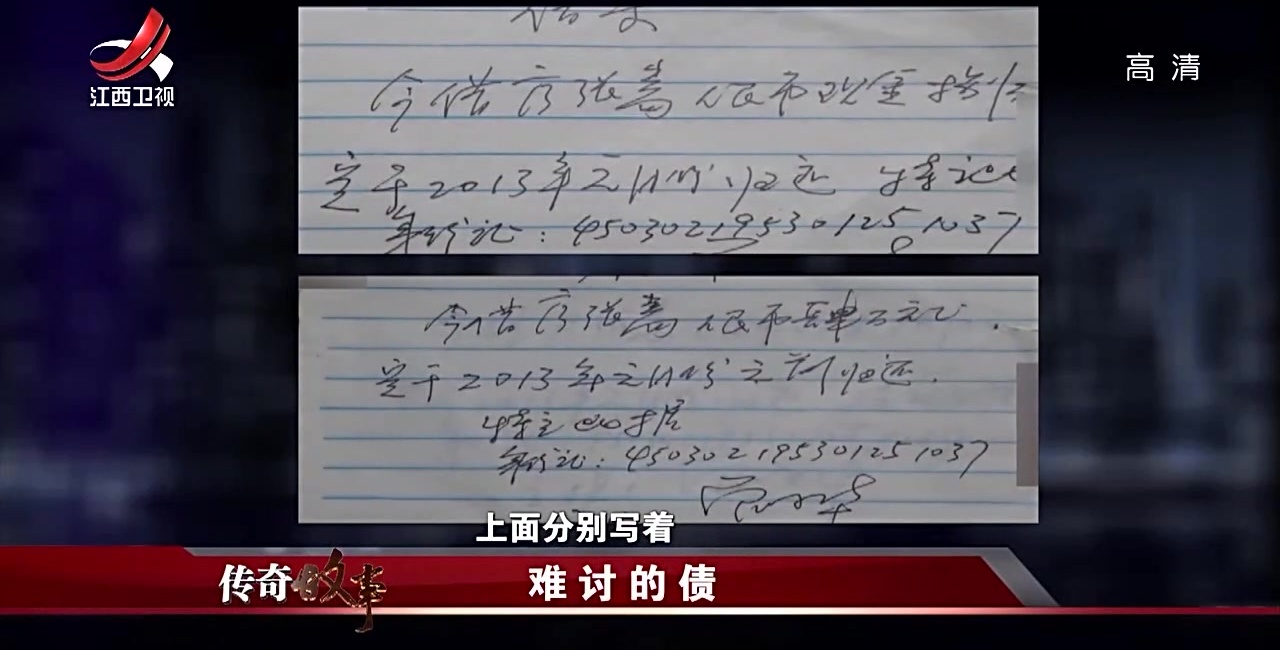 江西卫视
高清
借支
今借方张嵩人民币现金
定于2013年元月份归还 特记
身份证：450302195301251037
今借方张嵩人民币肆万元正.
定于2013年元月份之前归还.
特立此据
身份证：450302195301251037
上面分别写着
传奇故事
难讨的债